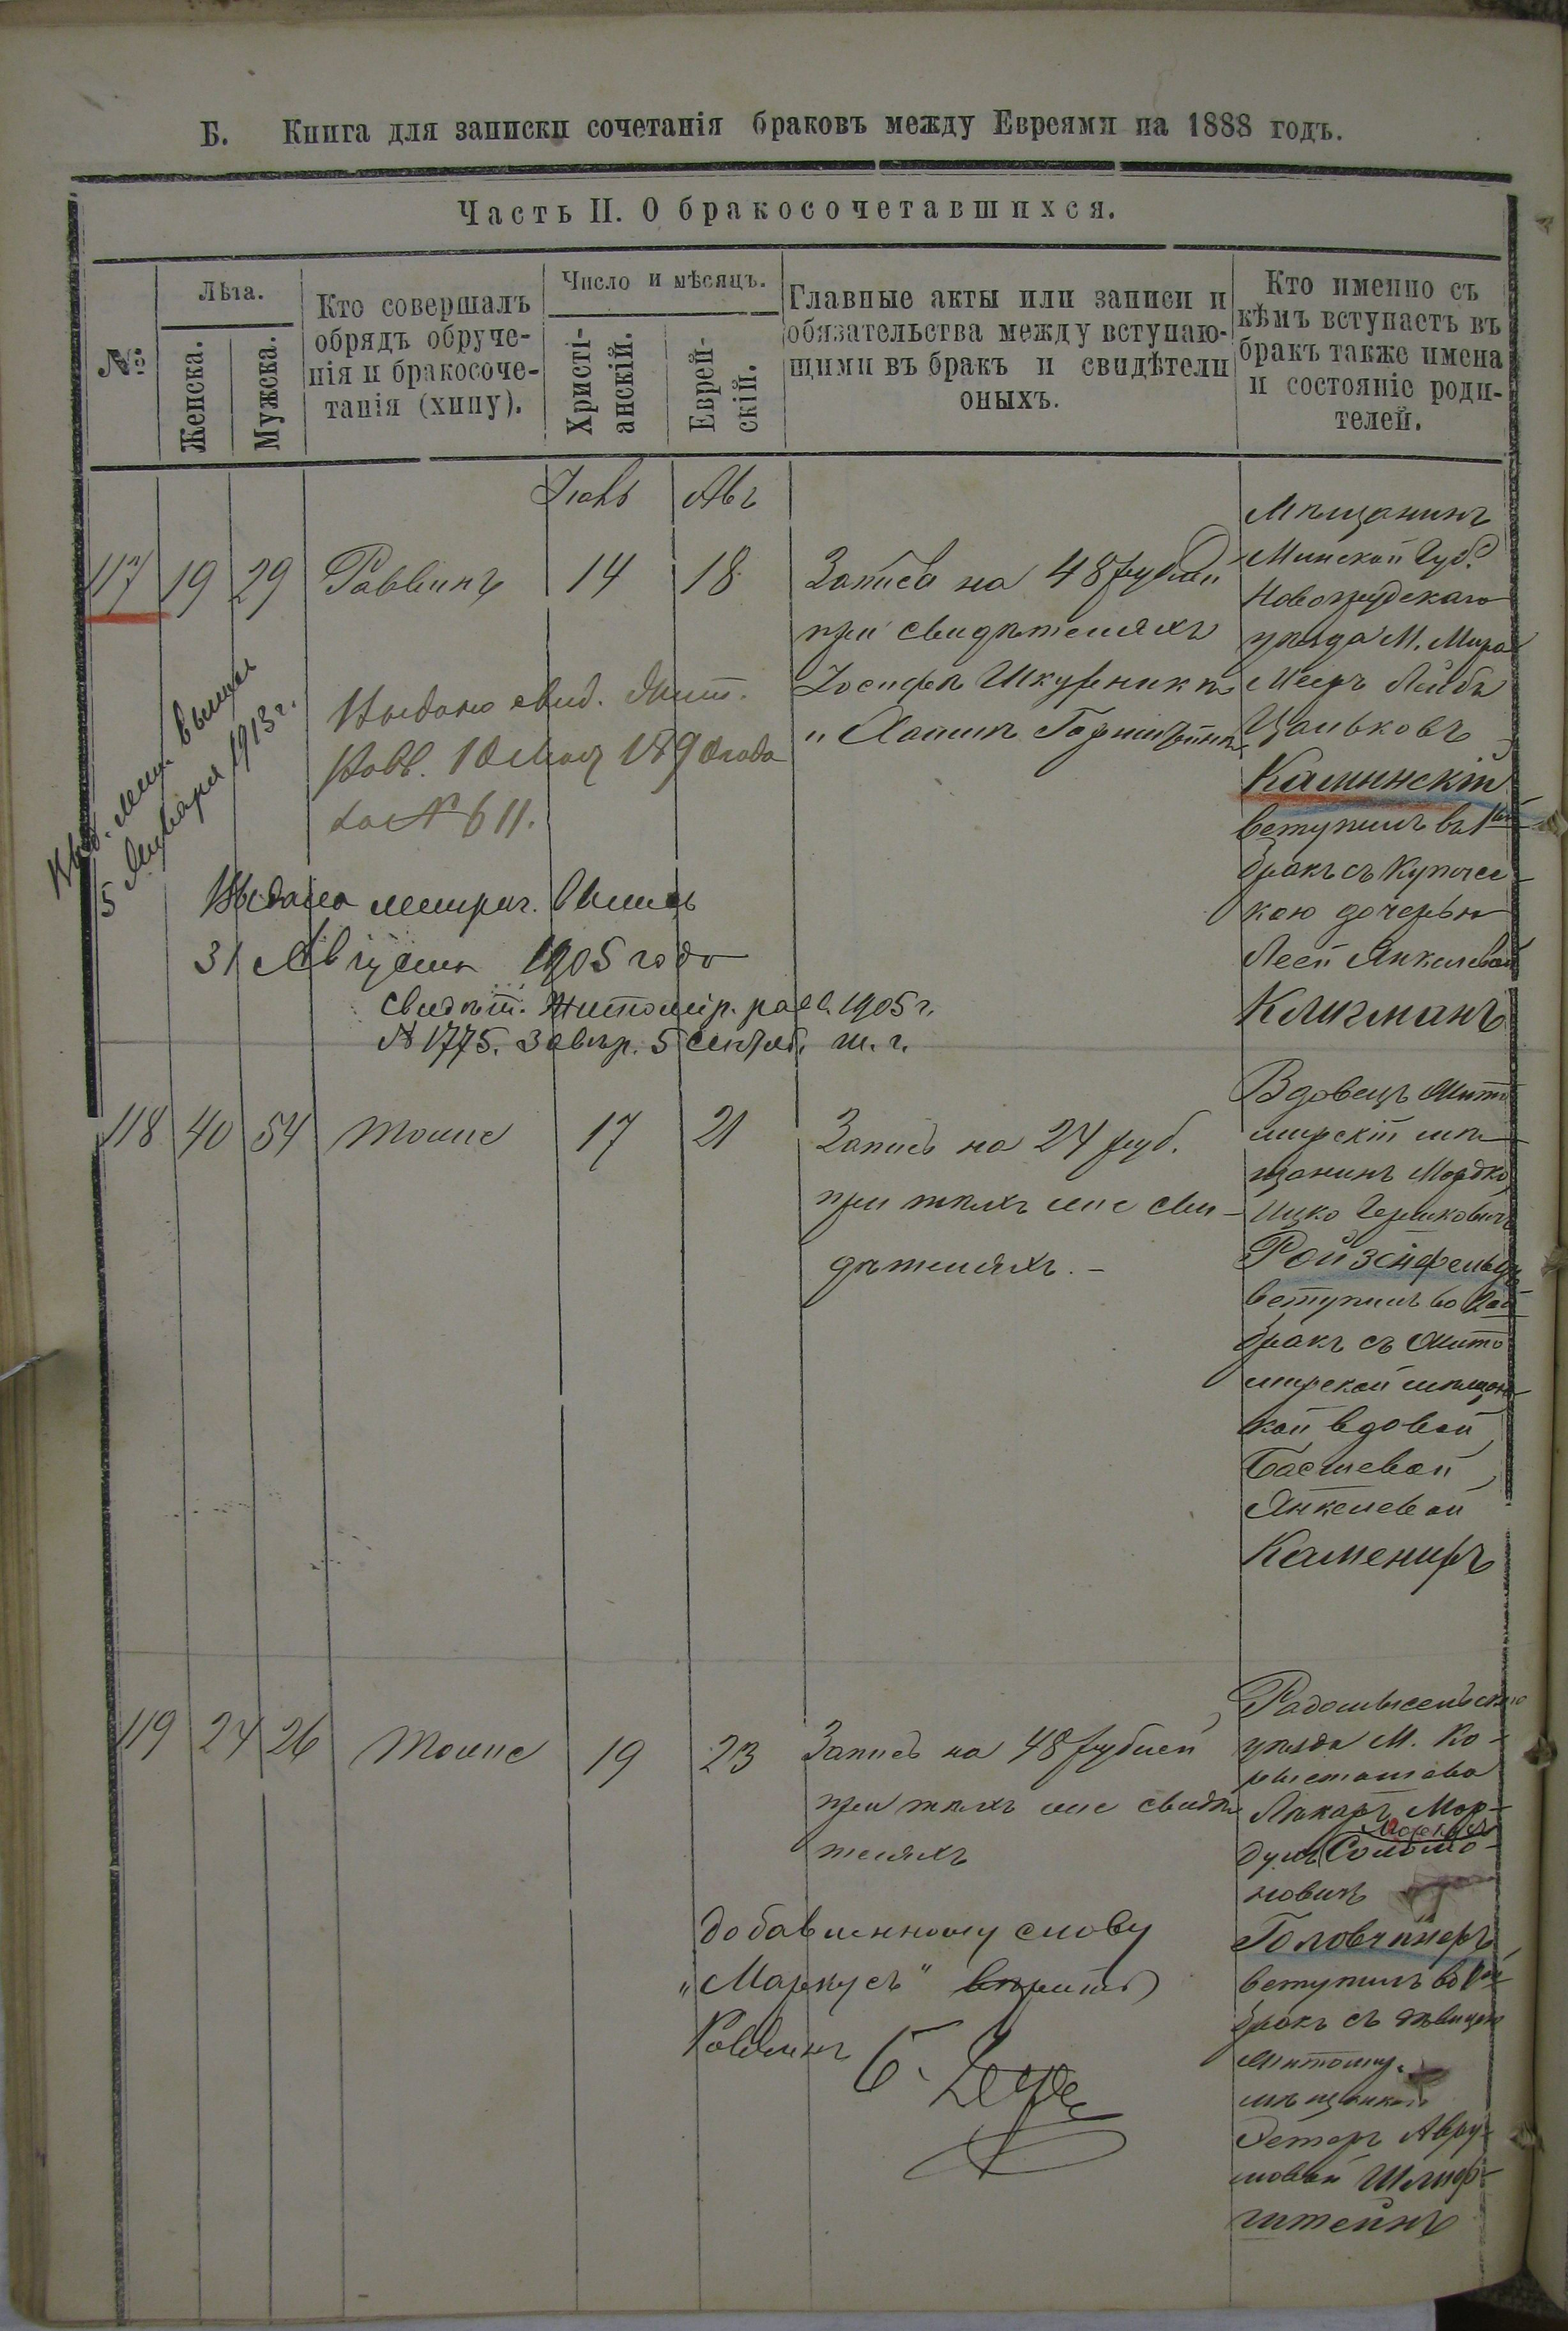 Б. Книга для записки сочетанія браковъ между Евреями на 1888 годъ.
Часть II. О бракосочетавшихся.
№
Лѣта.
Женска.
Мужска.
Кто совершалъ
обрядъ обруче-
нія и бракосоче-
танія (хипу).
Число и мѣсяцъ.
Христі-
анскій.
Еврей-
скій.
Главные акты или записи и
обязательства между вступаю-
щими въ бракъ и свидѣтели
оныхъ.
Кто именно съ
кѣмъ вступаетъ въ
бракъ также имена
и состояніе роди-
телей.
Іюль Авъ
117 19 29 Раввинъ 14 18
Запись на 48 рублей
при свидѣтеляхъ
Іосифѣ Шкурникѣ
и Хаимѣ
Мѣщанинъ
Минской Губ.
Новогрудскаго
уѣзда М. Мира
Мееръ Лейба
Цальковъ
Каминскій
вступилъ въ 1ый
бракъ съ Купечес-
кою дочерью
Леей Янкелевой
Клигманъ
Выдано свид. Жит.
Равв. 10 1890 года
за № 611.
5 Января 1913 г.
Выдана метрич. выпись
31 Августа 1905 года
свидѣт. Житомір. равв. 1905 г.
№ 1775. Завѣр. 5 Сентяб. т. г.
118 40 54 тоже 17 21
Запись на 24 руб.
при тѣхъ же сви-
дѣтеляхъ. –
Вдовецъ Жито
мирскій мѣ-
щанинъ Мордко
Ицко Гершковичъ
Ройзенфельдъ
вступилъ во 2ой
бракъ съ Жито
мирской мѣщан-
кой вдовой
Басшевой
Янкелевой
Камениръ
119 24 26 тоже 19 23
Запись на 48 рублей
при тѣхъ же свидѣ
теляхъ
Радомысельскаго
уѣзда М. Ко-
ростышева
Лѣкарь Мор-
Маркусъ
духъ Соломо-
новичъ
Головчинеръ
вступилъ въ 1ый
бракъ съ дѣвицею
Житомир.
мѣщанкою
Эстеръ Авру-
мовой Шмор-
штейнъ
добавленному слову
„Маркусъ“ вѣрить
Раввинъ